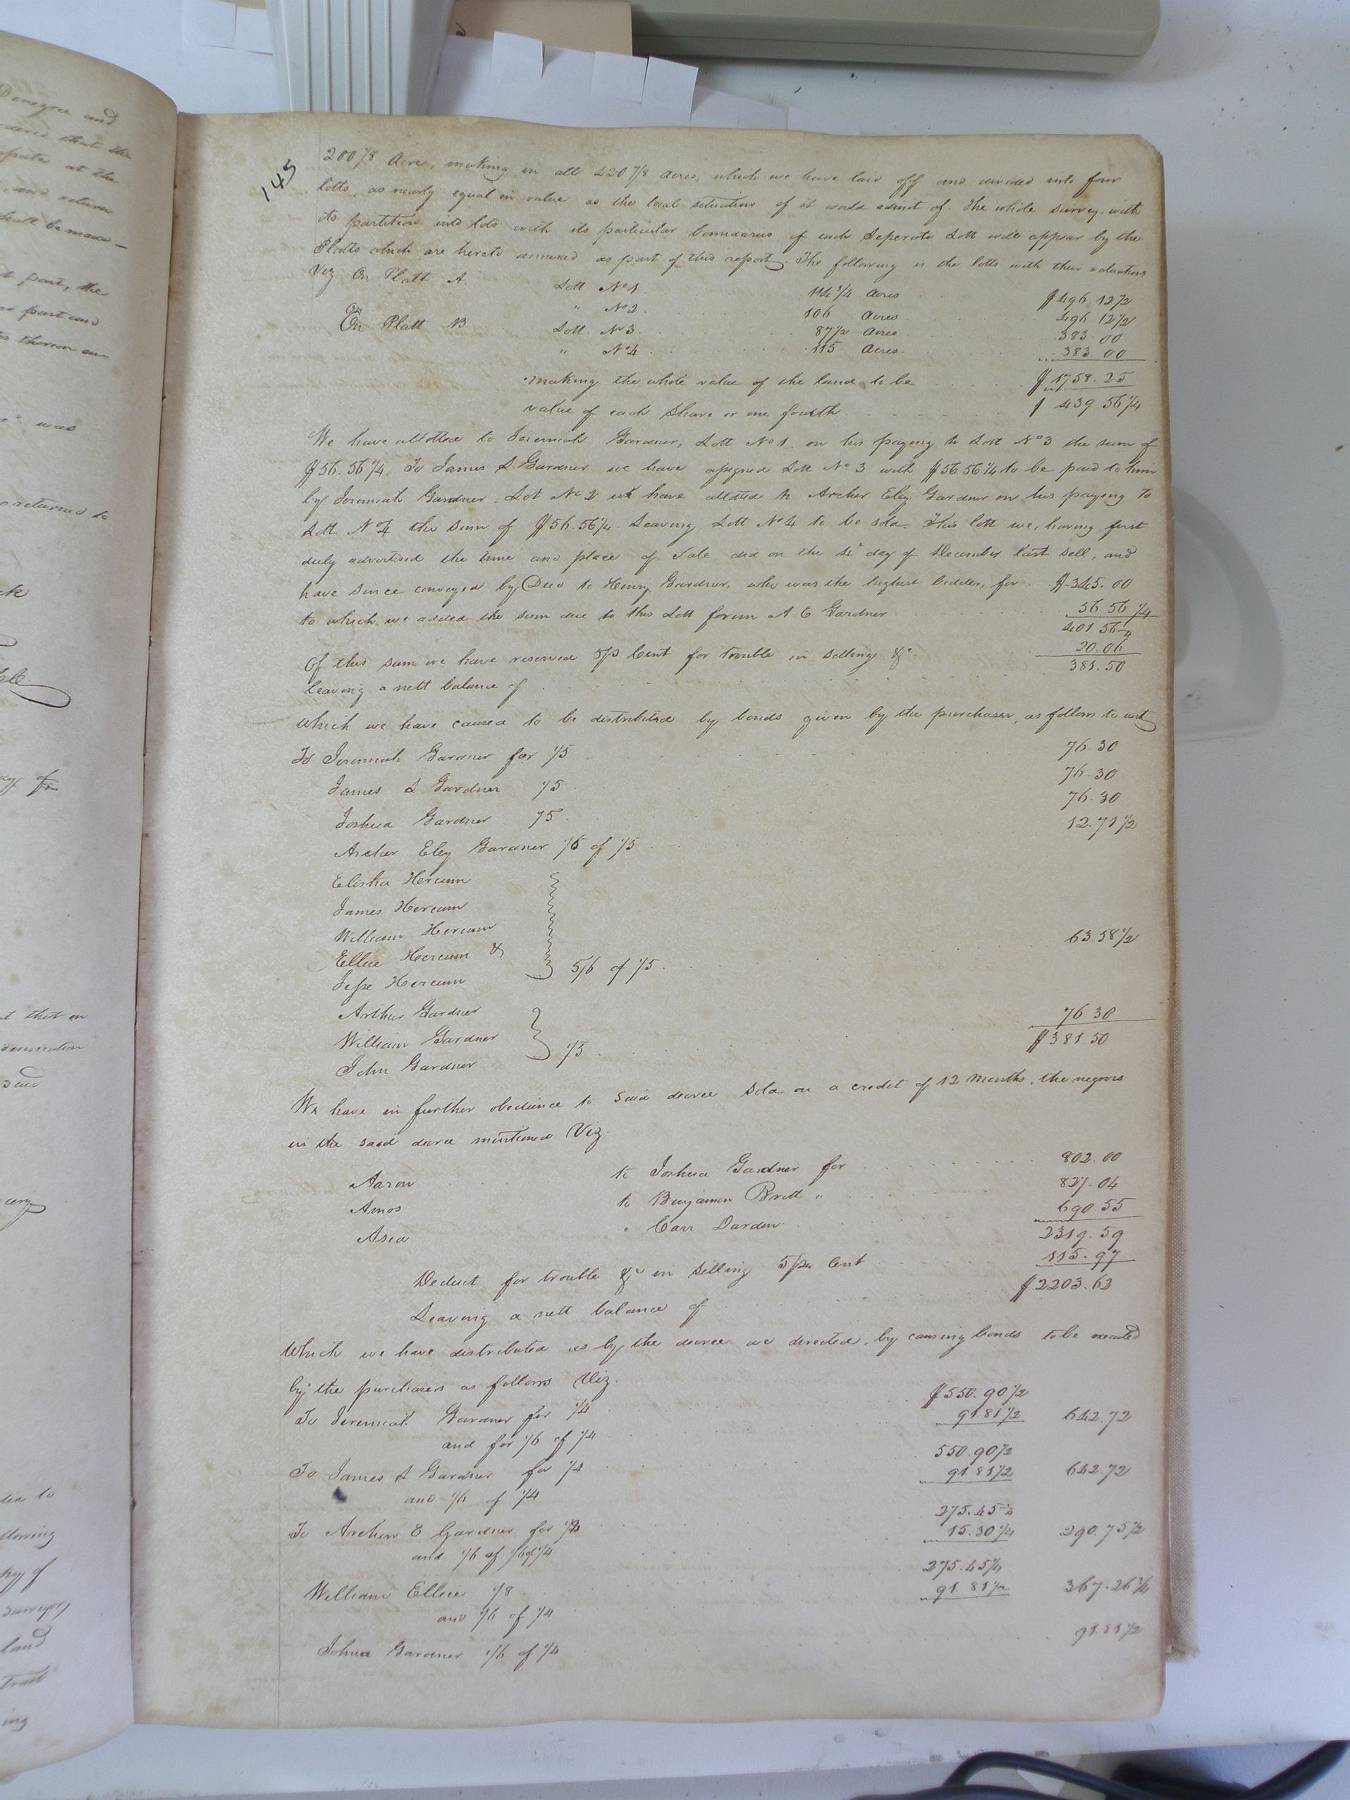 145
200 7/8 Acre, making in all 420 7/8 acres, which we have laid off and divided into four
lotts, as nearly equal in value as the local situation of it would admit of. The whole survey, with
its partition into lots with its particular boundaries of each Seperate Lott will appear by the
Platts which are hereto annexed as part of this report. The following is the lotts with their valuation
Viz On Platt A. Lott No 1 114 3/4 acres $496 12 1/2
" No 2 106 Acres 496 12 1/2
On Platt B Lott No 3 87 1/2 Acres 383.00
" No 4 115 Acres 383.00
making the whole value of the land to be $1758.25
value of each Share or one fourth $439 56 1/4
We have allotted to Jeremiah Gardner, Lott No 1 on his paying to Lott No 3 the sum of
$56.56 1/4. To James L Gardner we have assigned Lott No 3 with $56.56 1/4 to be paid to him
by Jeremiah Gardner. Lot No 2 we have allotted to Archer Eley Gardner on his paying to
Lott No 4 the sum of $56.56 1/4. Leaving Lott No 4 to be sold. This lott we, having first
duly advertised the time and place of Sale did on the day of December last sell, and
have since conveyed by Deed to Henry Gardner, who was the highest bidder, for $345.00
to which we added the sum due to this Lott from A E Gardner 56 56 1/4
401 56 1/4
Of this sum we have reserved 5 p Cent for trouble in selling &c. 20.06
leaving a nett balance of 381.50
which we have caused to be distributed by bonds given by the purchaser, as follows to wit
To Jeremiah Gardner for 1/5 76 30
James L Gardner 1/5 76.30
Joshua Gardner 1/5 76.30
Archer Eley Gardner 1/6 of 1/5 12.71 1/2
Elisha
James
William
&
Jesse 5/6 of 1/5 63.58 1/2
Arthur Gardner
William Gardner
John Gardner 1/5 76 30
$381 50
We have in further obedience to said decree sold on a credit of 12 Months, the negroes
in the said decree mentioned Viz.
Aaron to Joshua Gardner for 802.00
Amos to Benjamin Britt " 827.04
Asia " Carr Darden 690.55
2319.59
Deduct for trouble &c in selling 5 per Cent 115.97
Leaving a nett balance of $2203.62
Which we have distributed as by the decree we directed, by causing bonds to be executed
by the purchasers as follows Viz.
To Jeremiah Gardner for 1/4 $550.90 1/2
and for 1/6 of 1/4 91 81 1/2 642.72
To James L Gardner for 1/4 550.90 1/2
and 1/6 of 1/4 91.81 1/2 642.72
To Archer E Gardner for 1/8 275.45 1/4
and 1/6 of 1/6 of 1/4 15.30 1/4 290.75 1/2
William 1/8 275.45 1/4
and 1/6 of 1/4 91.81 1/2 367.26 3/4
Joshua Gardner 1/6 of 1/4 91.81 1/2